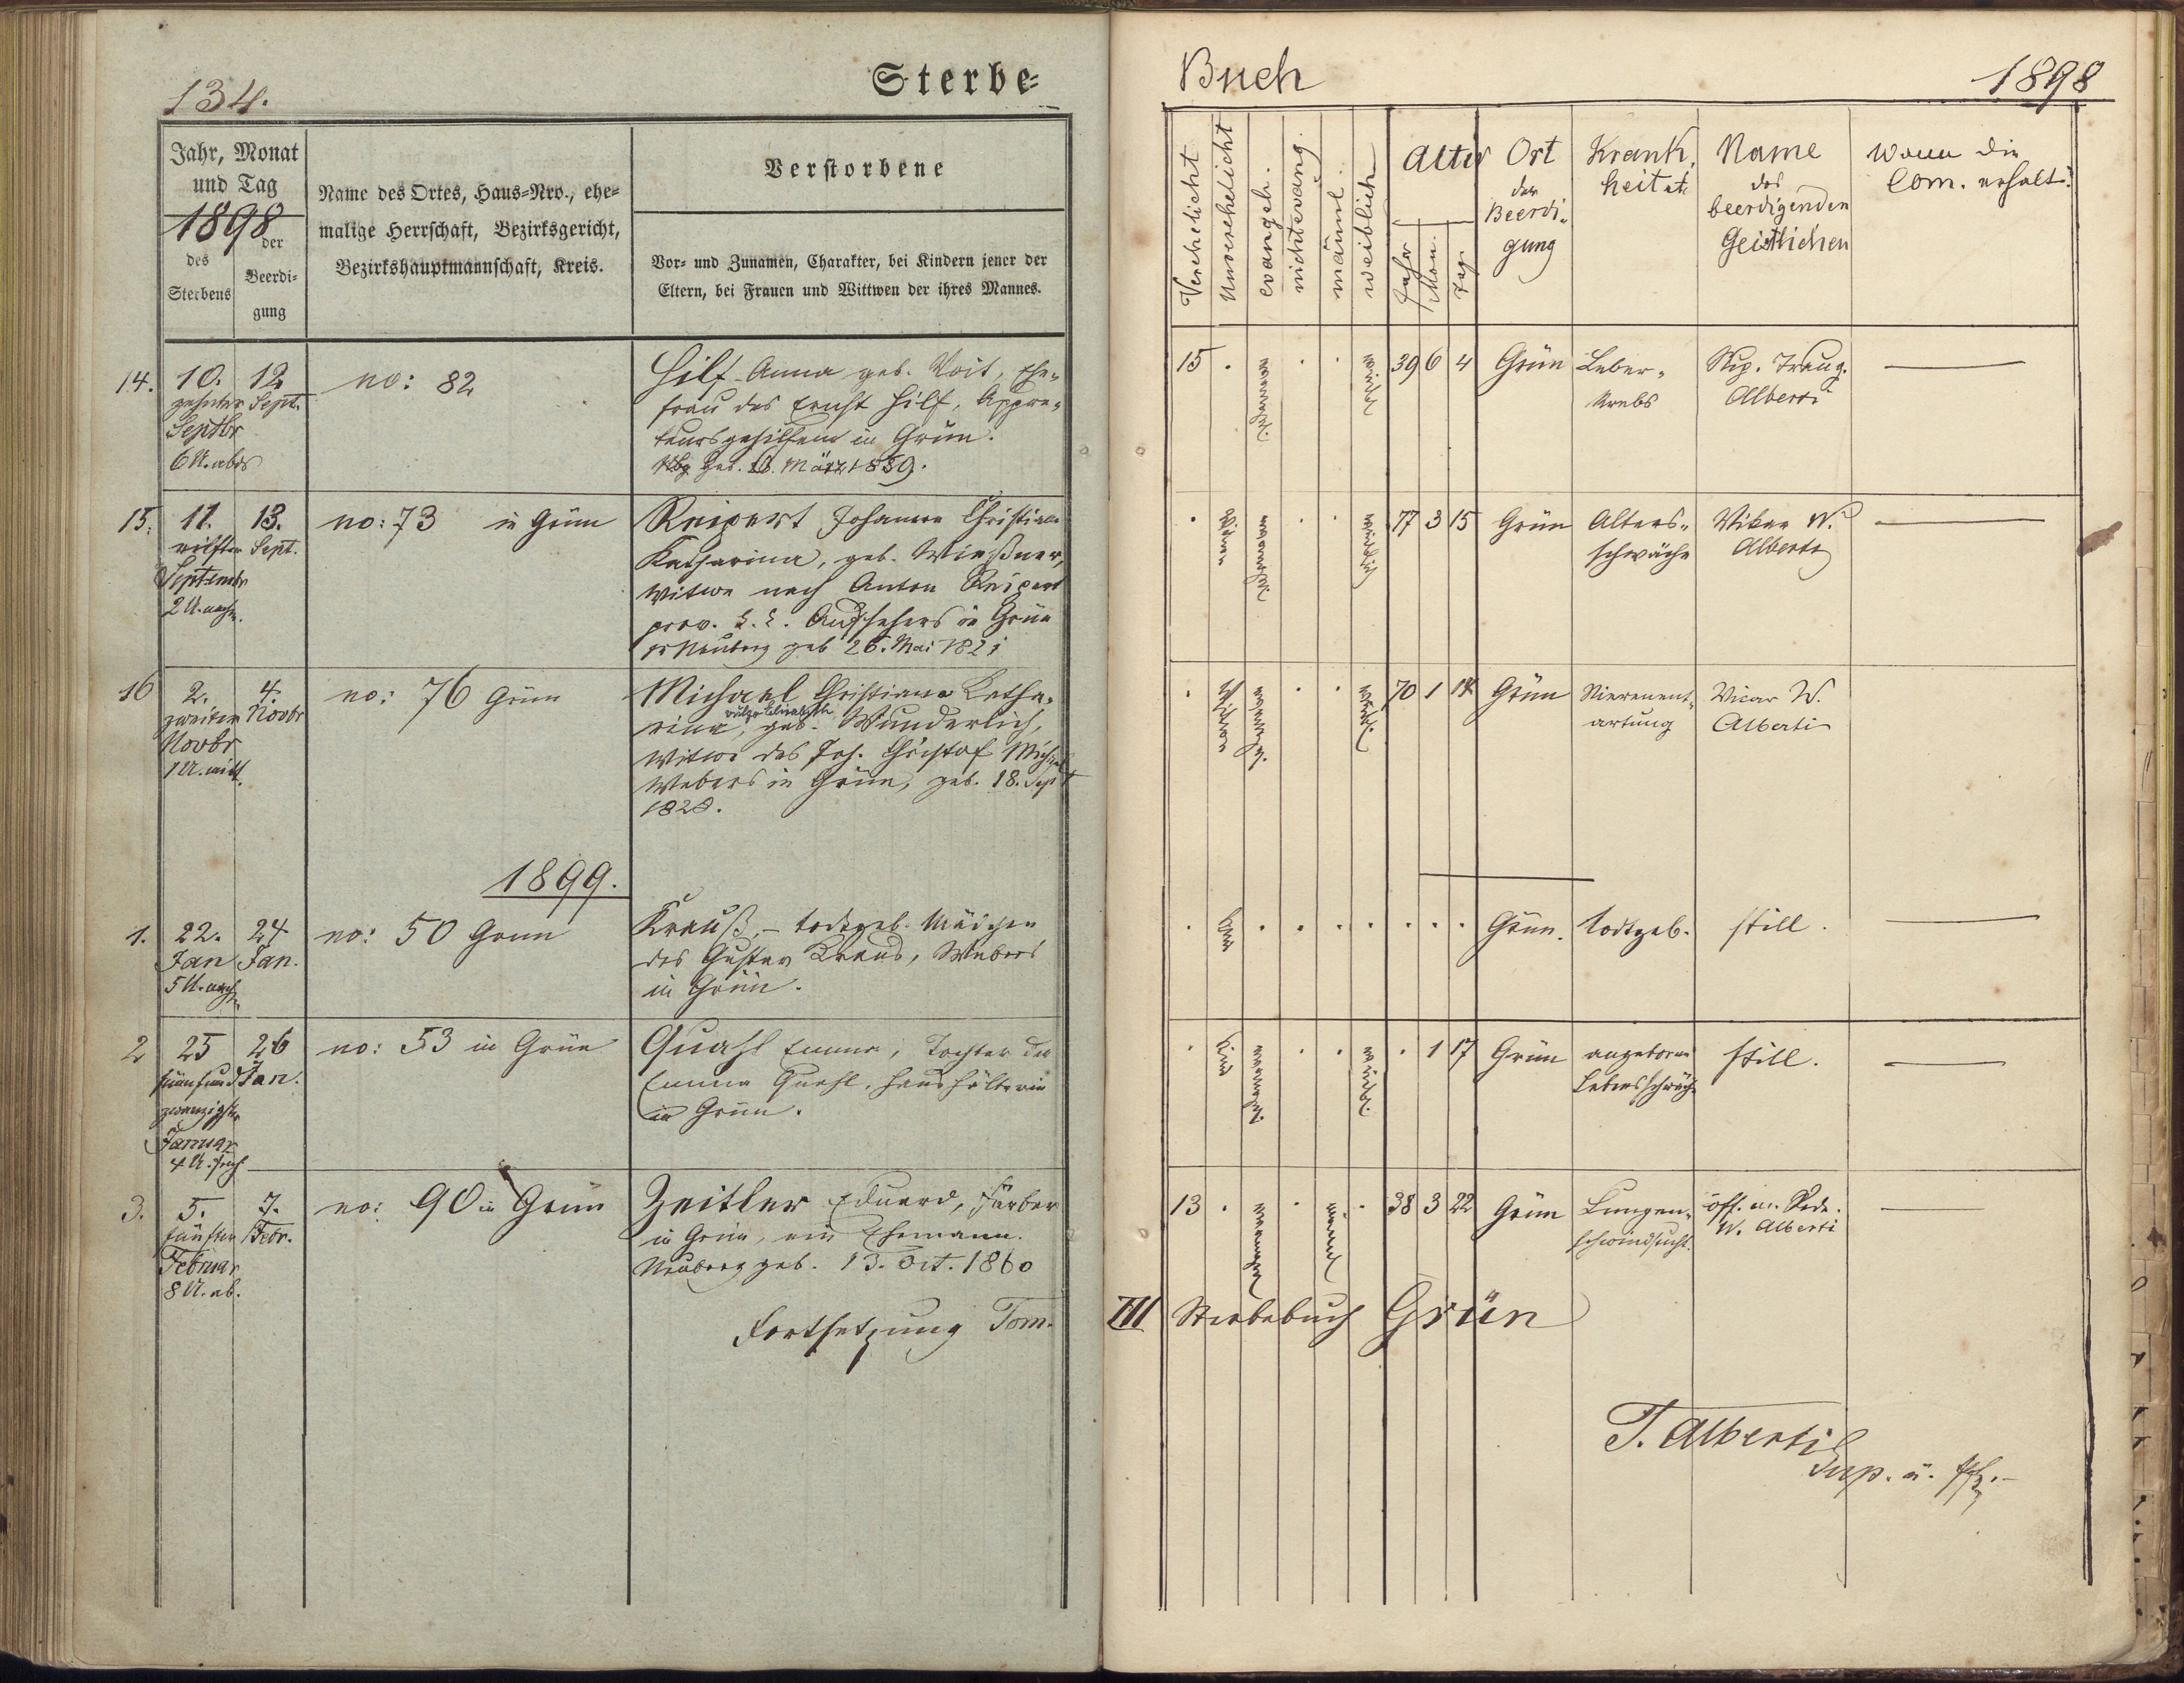 134.
Sterbe-
Jahr, Monat
und Tag
1898
des
Sterbens
der
Beerdi-
gung
Name des Ortes, Haus-Nro., ehe-
malige Herrschaft, Bezirksgericht,
Bezirkshauptmannschaft, Kreis.
Verstorbene
Vor- und Zunamen, Charakter, bei Kindern jener der
Eltern, bei Frauen und Wittwen der ihres Mannes.
14. 10. 12. no: 82
zehnter Sept.
Septbr
6 U. abds
Hilf Anna geb. Voit, Ehe-
frau des Ernst Hilf, Appre-
teursgehilfen in Grün.
geb. März
15. 11. 13. no: 73 in Grün
eilfter Sept.
Septembr
2 U. nachm.
Reipert Johanne Christiane
Katharina, geb. Wießner,
Witwe nach Anton Reipert
prov. k. k. Aufsehers in Grün
geb 26. Mai 1821
16 2. 4. no: 76 Grün
zweiter Novbr
Novbr
1 U. mitt.
Michael Christiana Katha-
vulgo Elisabeth
rina, geb. Wunderlich,
Witwe des Joh. Christof Michael
Webers in Grün, geb. 18. Sept
1828.
1899.
1. 22. 24 no: 50 Grün
Jan Jan.
5 U. nachm
Krauß, – todtgeb. Mädchen
des Gustav Kraus, Webers
in Grün.
2 25 26 no: 53 in Grün
fünfund Jan.
zwanzigster
Januar
4 U. früh
Quahl Emma, Tochter der
Emma Quahl, Haushälterin
in Grün.
3. 5. 7. no: 90 in Grün
fünfter Febr.
Februar
8 U. ab.
Zeitler Eduard, Färber
in Grün, ein Ehemann.
Neuberg geb. 13. Oct. 1860
Fortsetzung Tom.
Buch
1898
Verehelicht
Unverehelicht
evangel.
nichtevang.
männl.
weiblich
Alter
Jahr
Mon.
Tag.
Ort
der
Beerdi-
gung
Krank-
heit etc.
Name
des
beerdigenden
Geistlichen
Wann die
Com. erhalt.
15 . evangel. . . weibl. 39 6 4 Grün Leber-
krebs
Sup. Traug.
Alberti
. Witwe evangelisch . . weiblich 77 3 15 Grün Alters-
schwäche
Vikar W.
Alberti
. Witwe evangel. . . weibl. 70 1 14 Grün Nierenent-
artung
Vicar W.
Alberti
. Kind . . . . . . . Grün. todtgeb. still.
. Kind evangel. . . weibl. . 1 17 Grün angeborne
Lebensschwäche
still.
13 . evangel . männl . 38 3 22 Grün Lungen-
schwindsucht.
öff. m. Rede.
W. Alberti
III Sterbebuch Grün
T. Alberti
Sup. u. Pfr.